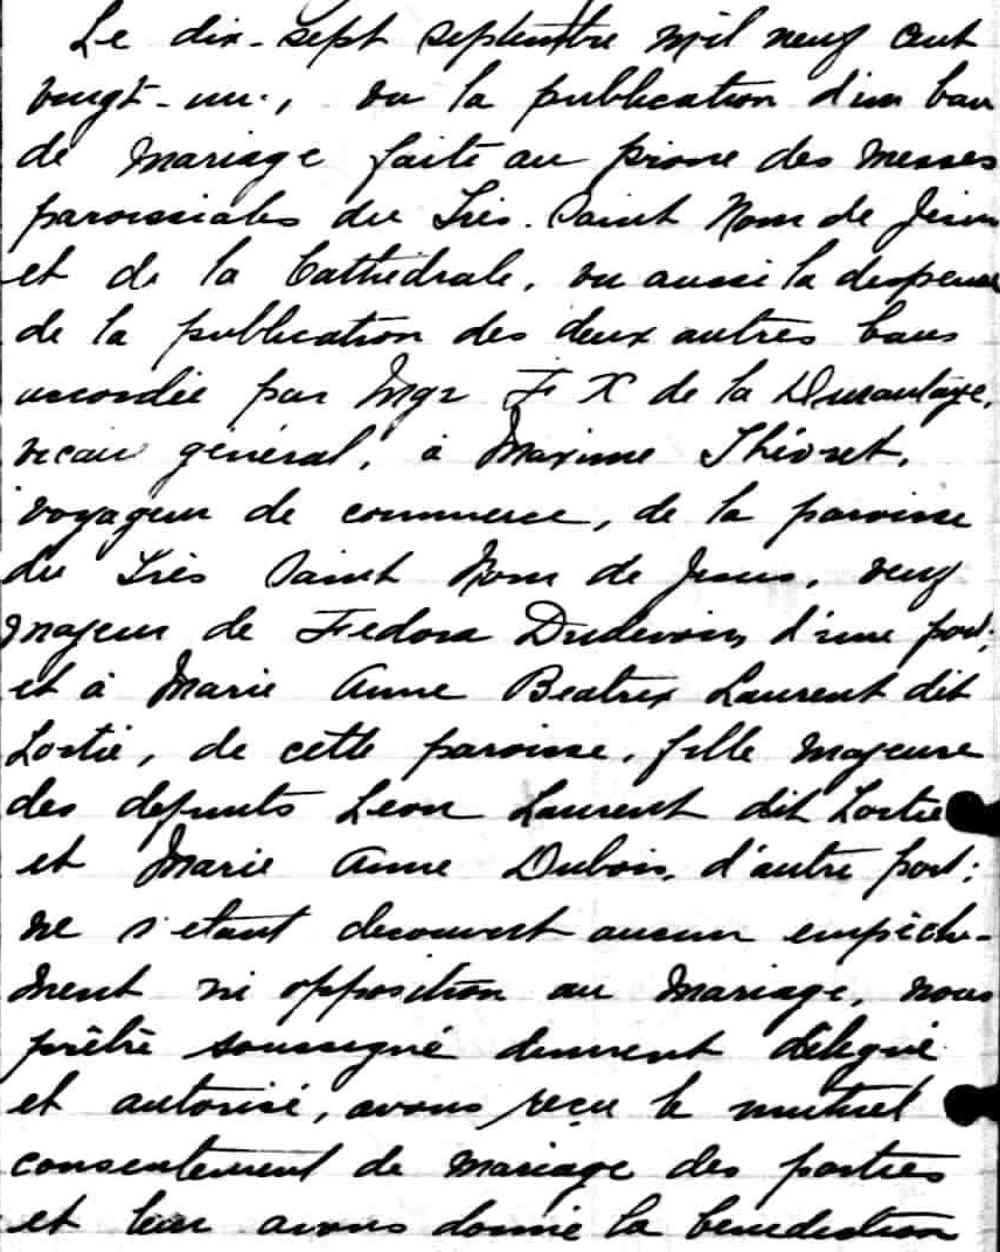 Le dix-sept septembre mil neuf cent
vingt-un, vu la publication d'un ban
de mariage faite au prone des messes
paroissiales du Très-Saint Nom de Jésus
et de la Cathédrale, vu aussi la dispense
de la publication des deux autres bans
accordée par Mgr F X de la Durantaye,
vicaire général, à Maxime Théoret,
voyageur de commerce, de la paroisse
du Très Saint Nom de Jesus, veuf
majeur de Fedora Dudevoir, d'une part;
et à Marie Anne Beatrix Laurent dit
Lortie, de cette paroisse, fille majeure
des defunts Leon Laurent dit Lortie
et Marie Anne Dubois, d'autre part;
ne s'etant decouvert aucun empêche-
ment ni opposition au mariage, nous
prêtre soussigné dument délégué
et autorisé, avons reçu le mutuel
consentement de mariage des parties
et leur avons donné la benediction